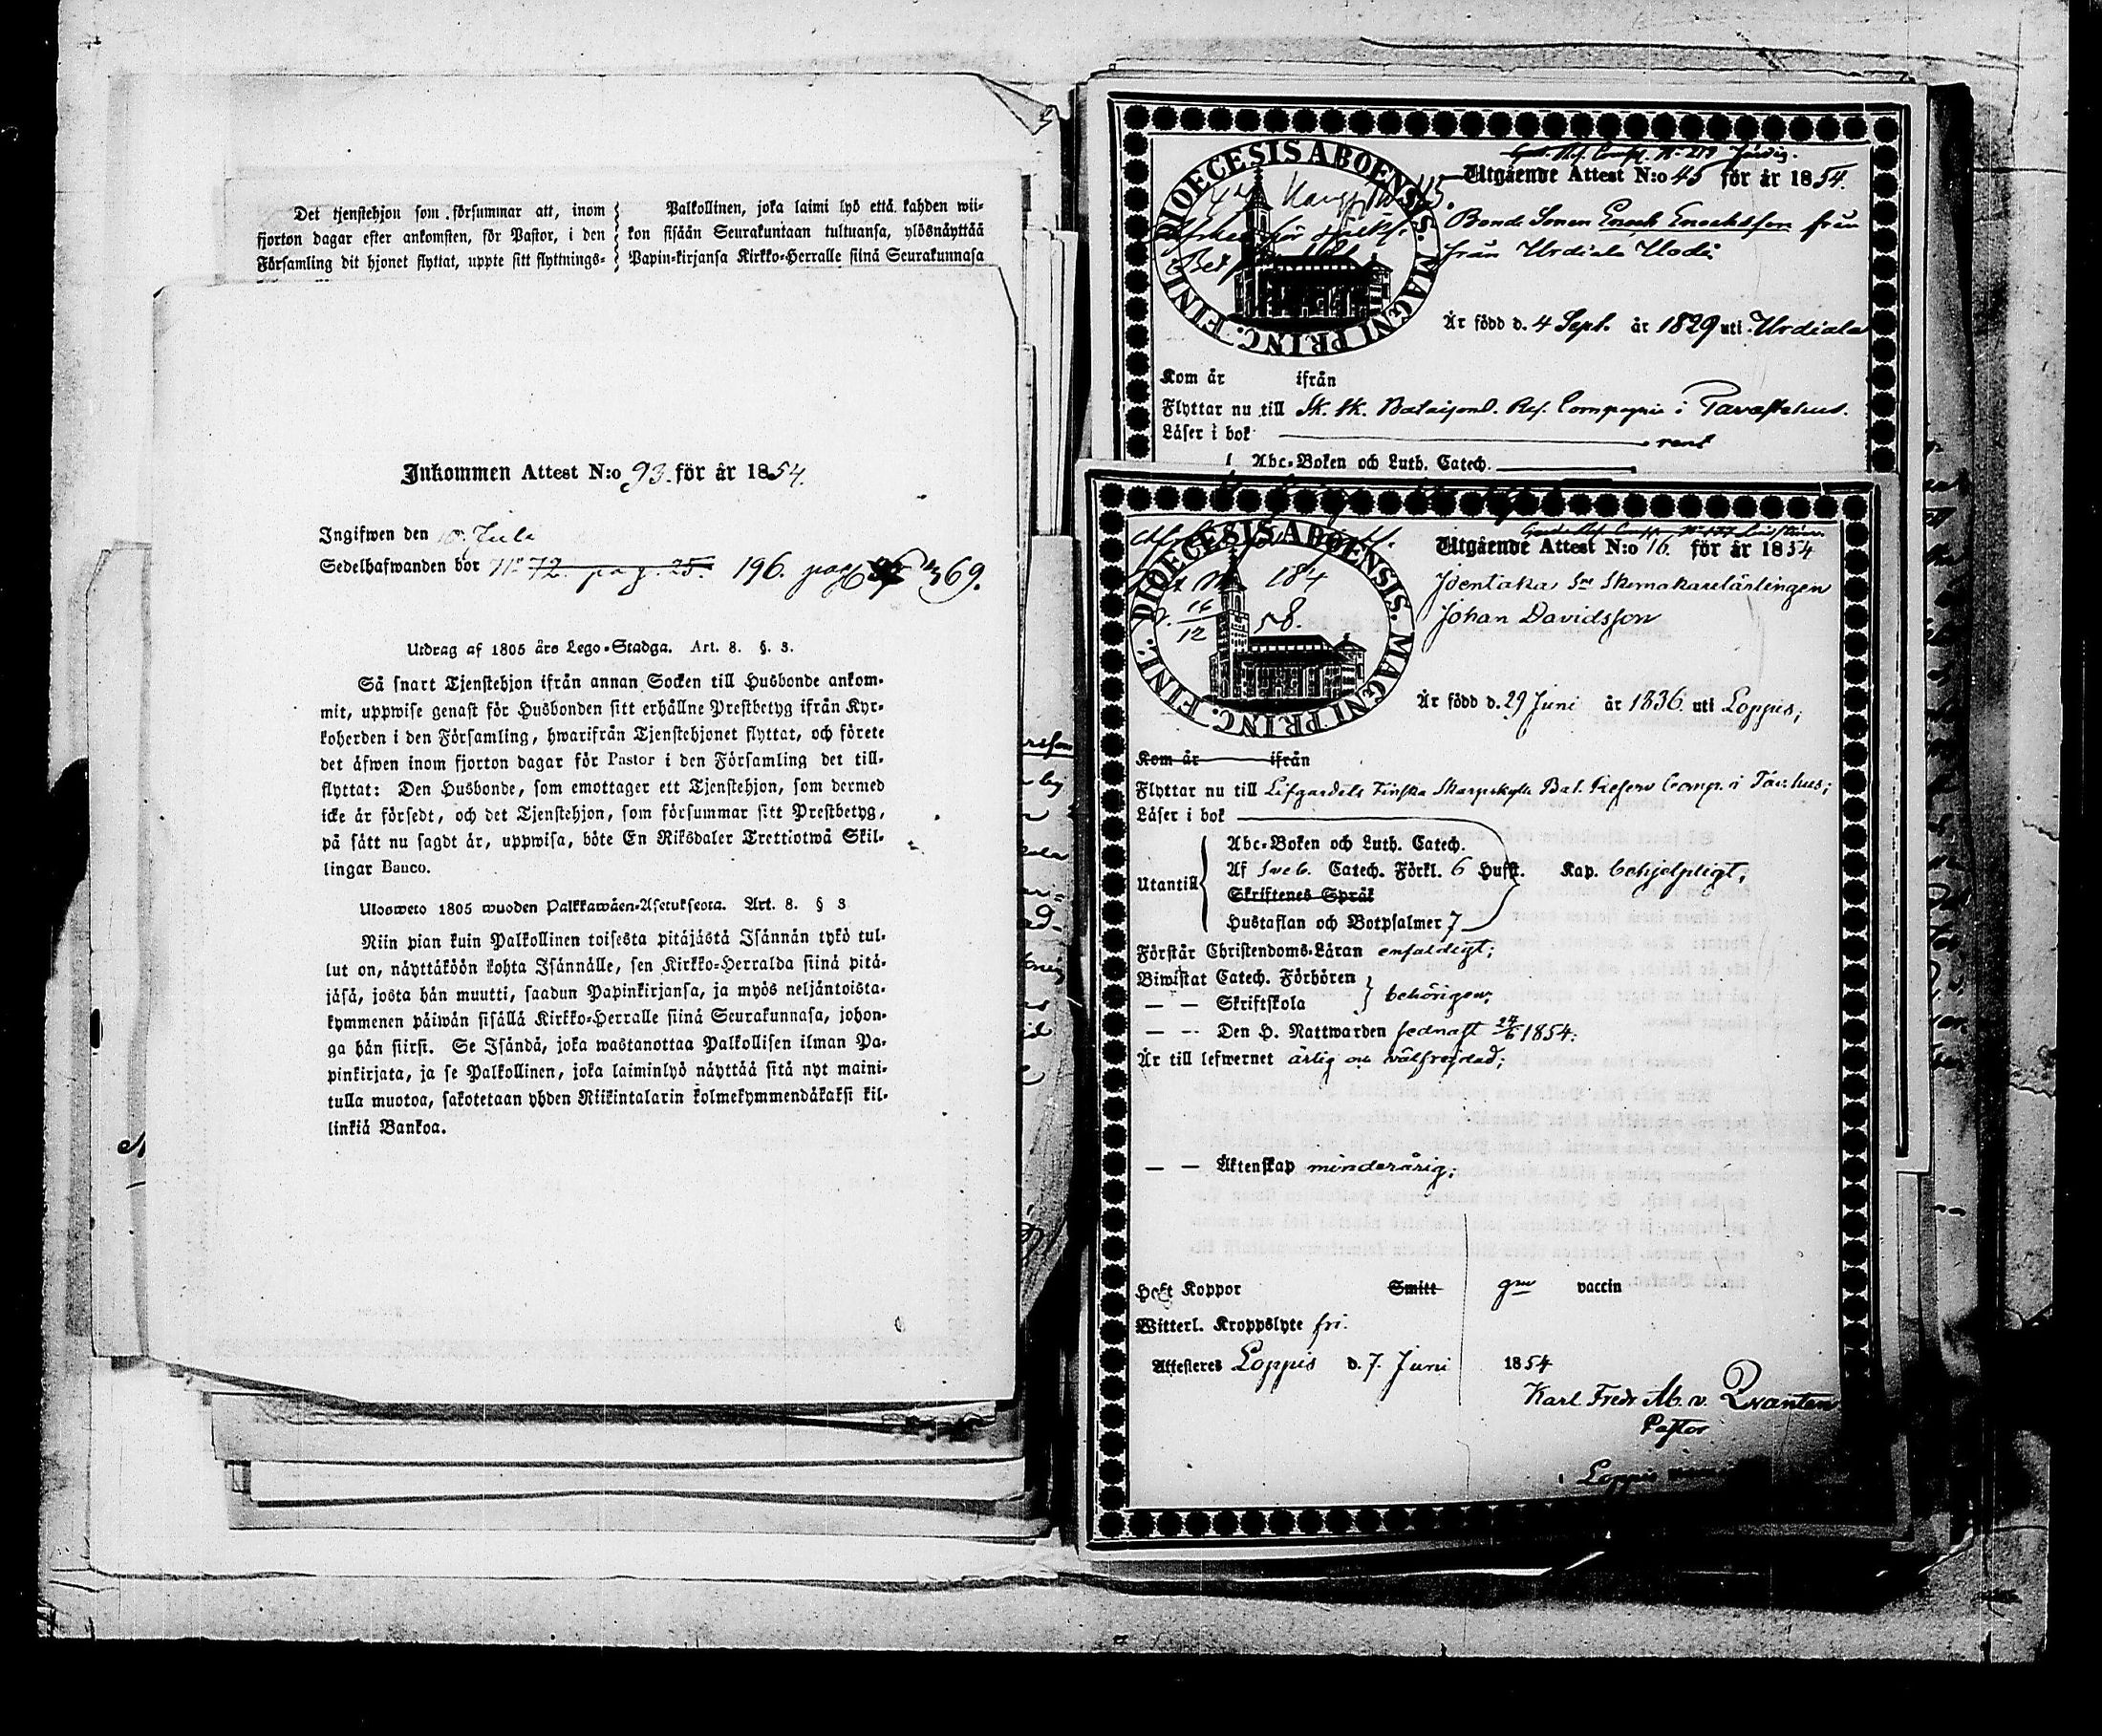 Det tjenstehjon som försummar att, inom
fjorton dagar efter ankomsten, för Pastor, i den
Församling dit hjonet flyttat, uppte sitt flyttnings-
Palkollinen, joka laimi lyö että kahden wii-
kon sisään Seurakuntaan tultuansa, ylösnäyttää
Papin-kirjansa Kirkko-Herralle siinä Seurakunnasa
Inkommen Attest N:o 93. för år 1854.
Ingifwen den Juli
Sedelhafwanden bor N:o 72. pag. 25. 196. pag 369.
Utdrag af 1805 års Lego-Stadga. Art. 8. §. 3.
Så snart Tjenstehjon ifrån annan Socken till Husbonde ankom-
mit, uppwise genast för Husbonden sitt erhållne Prestbetyg ifrån Kyr-
koherden i den Församling, hwarifrån Tjenstehjonet flyttat, och förete
det äfwen inom fjorton dagar för Pastor i den Församling det till-
flyttat: Den Husbonde, som emottager ett Tjenstehjon, som dermed
icke är försedt, och det Tjenstehjon, som försummar sitt Prestbetyg,
på sätt nu sagdt är, uppwisa, böte En Riksdaler Trettiotwå Skil-
lingar Banco.
Ulosweto 1805 wuoden Palkkawäen-Asetuksesta. Art. 8. § 3
Niin pian kuin Palkollinen toisesta pitäjästä Isännän tykö tul-
lut on, näyttäköön kohta Isännälle, sen Kirkko-Herralda siinä pitä-
jäsä, josta hän muutti, saadun Papinkirjansa, ja myös neljäntoista-
kymmenen päiwän sisällä Kirkko-Herralle siinä Seurakunnasa, johon-
ga hän siirsi. Se Isändä, joka wastanottaa Palkollisen ilman Pa-
pinkirjata, ja se Palkollinen, joka laiminlyö näyttää sitä nyt maini-
tulla muotoa, sakotetaan yhden Riikintalarin kolmekymmendäkaksi kil-
linkiä Bankoa.
DIOECESIS ABOENSIS. MAGNI PRINC. FINL.
Utgående Attest N:o 45 för år 1854.
Bonde Sonen Enoch Enochsson från
från Urdiala
Är född d. 4 Sept. år 1829 uti Urdiala
Kom år ifrån
Flyttar nu till Sk. Bataijonl. Res. Compagnie i Tavastehus.
Läser i bok rent
Abc-Boken och Luth. Catech.
DIOECESIS ABOENSIS. MAGNI PRINC. FINL.
184
16
12
58.
Utgående Attest N:o 16. för år 1854
Joentaka Sn Skomakarelärlingen
Johan Davidsson
Är född d. 29 Juni år 1836 uti Loppis;
Kom år ifrån
Flyttar nu till Lifgardets Finska Skarpskytte Bat. Reserv Comp. i Tavhus;
Läser i bok
Utantill
Abc-Boken och Luth. Catech.
Af Sveb. Catech. Förkl. 6 Hufst. Kap. behjelpligt;
Skriftenes Språk
Hustaflan och Botpsalmer 7
Förstår Christendoms-Läran enfaldigt;
Biwistat Catech. Förhören
— — Skriftskola behörigen;
— — Den H. Nattwarden sednast 1854;
Är till lefwernet ärlig och välfrejdad;
— — Äktenskap minderårig;
Haft Koppor Smitt gm vaccin
Witterl. Kroppslyte fri.
Attesteres Loppis d. 7. Juni 1854
Karl Fredr. Ab. v. Qvanten
Pastor
i Loppis